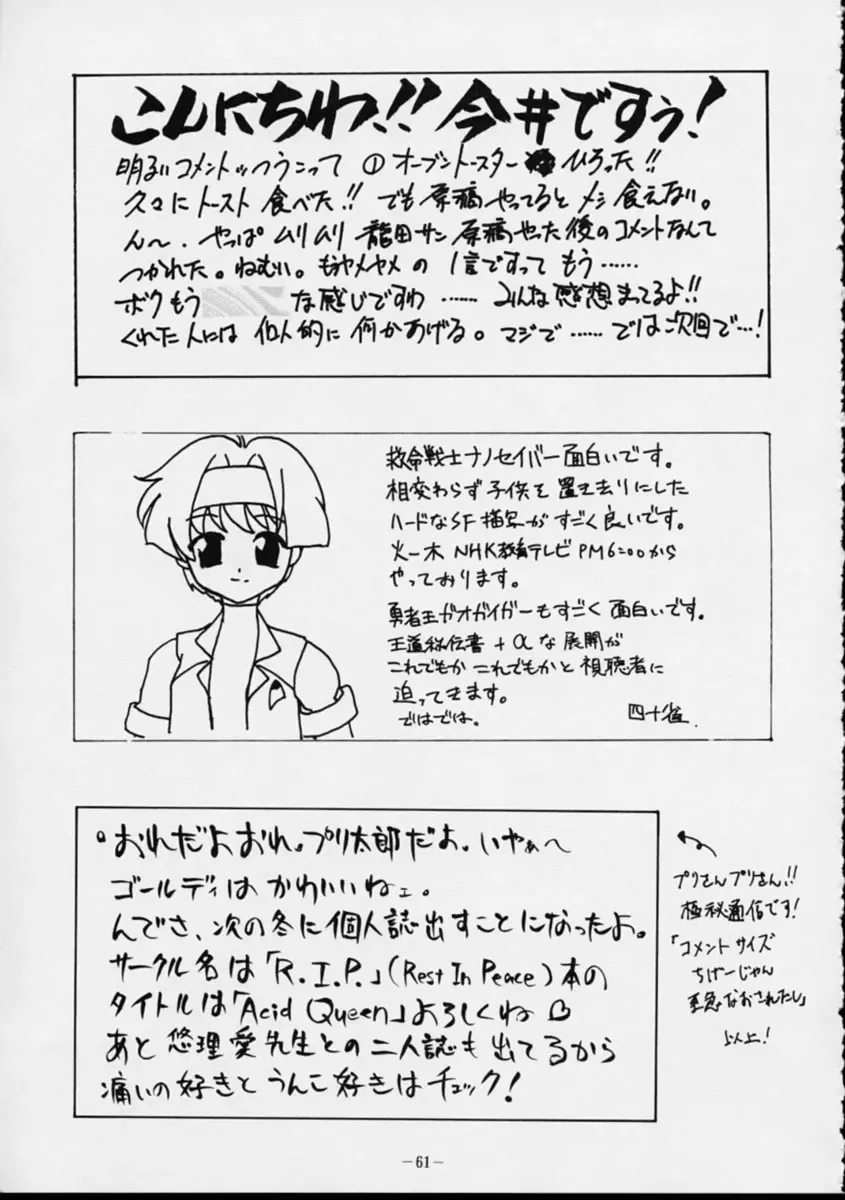 こんにちわ!!今井ですぅ!
明るいコメントっつうこって ①オーブントースター ひろった!!
久々にトースト食べた!! でも原稿やってるとメシ食えない。
ん〜.やっぱムリムリ 龍田サン原稿やった後のコメントなんて
つかれた。ねむい。もうヤメヤメの1言ですって もう……
ボクもう な感じですわ …… みんな感想まってるよ!!
くれた人には個人的に何かあげる。マジで……では次回で…!
救命戦士ナノセイバー面白いです。
相変わらず子供を置き去りにした
ハードなSF描写がすごく良いです。
火〜木 NHK教育テレビPM6:00から
やっております。
勇者王ガオガイガーもすごく面白いです。
王道秘伝書+αな展開が
これでもかこれでもかと視聴者に
迫ってきます。
ではでは。
四十雀.
おれだよおれ。プリ太郎だよ。いやぁ〜
ゴールディはかわいいねェ。
んでさ、次の冬に個人誌出すことになったよ。
サークル名は「R.I.P.」(Rest In Peace)本の
タイトルは「Acid Queen」よろしくね♡
あと悠理愛先生との二人誌も出てるから
痛いの好きとうんこ好きはチェック!
プリさんプリさん!!
極秘通信です!
「コメントサイズ
ちげーじゃん
至急なおされたし」
以上!
-61-